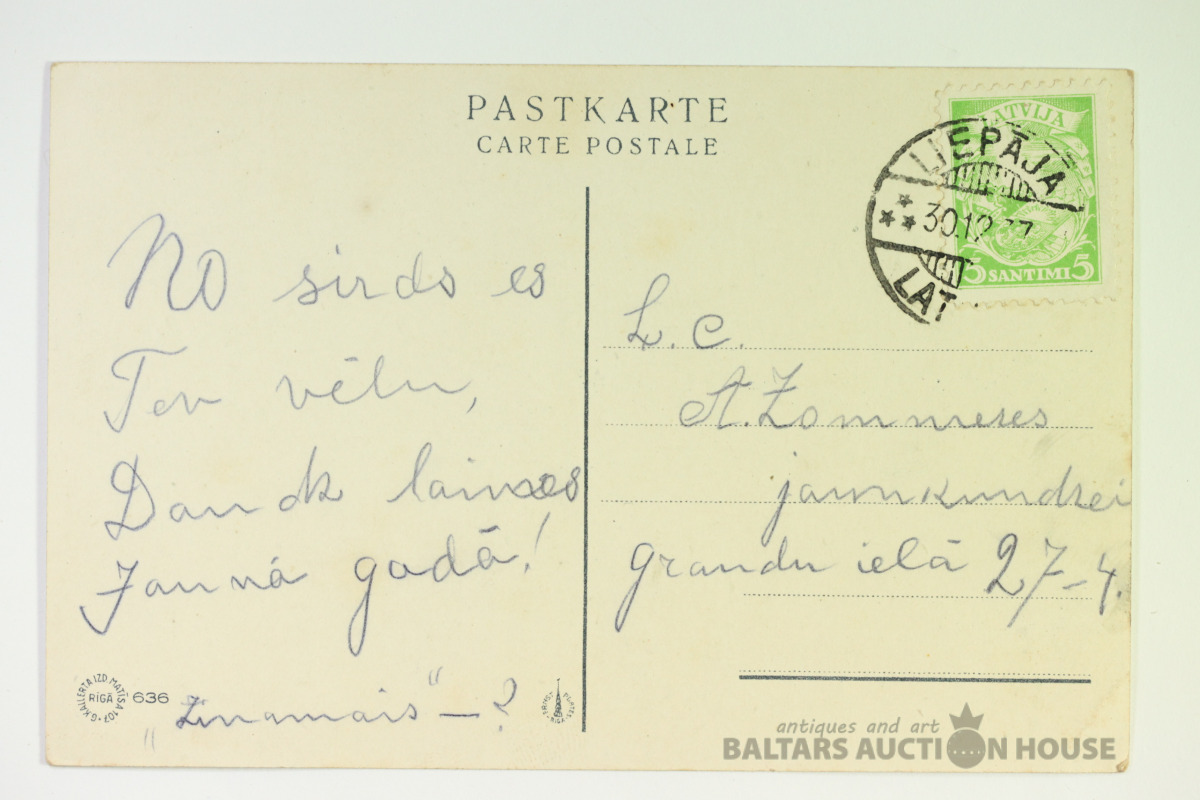 PASTKARTE
CARTE POSTALE
LATVIJA
5 SANTIMI 5
LIEPĀJA
30.12
LAT
No sirds es
Tev vēlu,
Daudz laimes
Jaunā gadā!
„Zināmais“ – ?
L. C.
A. Zommeres
jaunkundzei
Graudu ielā 27–4.
G. KALLERTA IZD. MATĪSA 107.
RĪGĀ
636
antiques and art
BALTARS AUCTION HOUSE